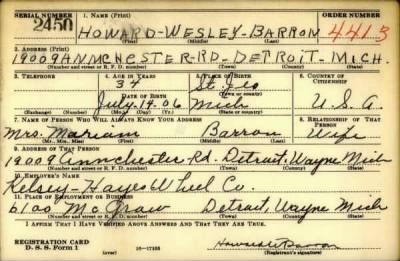 SERIAL NUMBER 1. NAME (Print) ORDER NUMBER
2450 HOWARD-WESLEY-BARRON 4413
(First) (Middle) (Last)
2. ADDRESS (Print)
19009 ANNCHESTER-RD-DETROIT-MICH.
(Number and street or R. F. D. number) (Town) (County) (State)
3. TELEPHONE 4. AGE IN YEARS 5. PLACE OF BIRTH 6. COUNTRY OF CITIZENSHIP
34 St. Jo
DATE OF BIRTH (Town or county)
July-14-06 Mich U.S.A.
(Exchange) (Number) (Mo.) (Day) (Yr.) (State or country)
7. NAME OF PERSON WHO WILL ALWAYS KNOW YOUR ADDRESS 8. RELATIONSHIP OF THAT PERSON
Mrs. Mariam Barron Wife
(Mr., Mrs., Miss) (First) (Middle) (Last)
9. ADDRESS OF THAT PERSON
19009 Annchester Rd. Detroit, Wayne Mich
(Number and street or R. F. D. number) (Town) (County) (State)
10. EMPLOYER'S NAME
Kelsey-Hayes Wheel Co.
11. PLACE OF EMPLOYMENT OR BUSINESS
6100 McGraw Detroit, Wayne Mich
(Number and street or R. F. D. number) (Town) (County) (State)
I AFFIRM THAT I HAVE VERIFIED ABOVE ANSWERS AND THAT THEY ARE TRUE.
REGISTRATION CARD
D. S. S. Form 1 (over) 16-17105 Howard W Barron
(Registrant's signature)